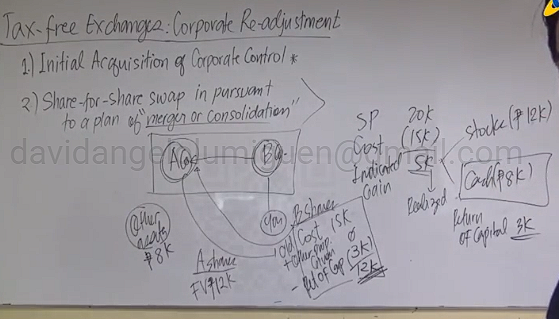 Tax-free Exchanges: Corporate Re-adjustment
1.) Initial Acquisition of Corporate Control *
2.) Share-for-share swap in pursuant
to a plan of "merger or consolidation"
SP 20k
Cost (15k)
Indicated Gain 5k
Realized
Stocks (₱12k)
Cash (₱8k)
Return
of Capital 3k
Other
assets
₱8k
A share
FV ₱12k
B Share
Old Cost 15k
(3k)
12k
davidange
@gmail.com